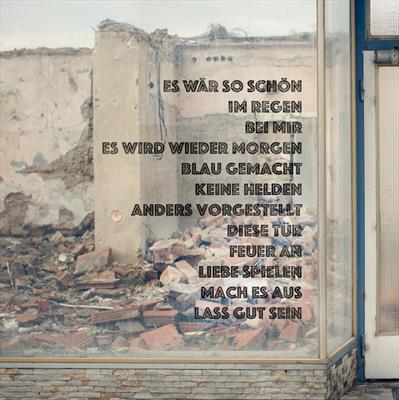 ES WÄR SO SCHÖN
IM REGEN
BEI MIR
ES WIRD WIEDER MORGEN
BLAU GEMACHT
KEINE HELDEN
ANDERS VORGESTELLT
DIESE TÜR
FEUER AN
LIEBE SPIELEN
MACH ES AUS
LASS GUT SEIN